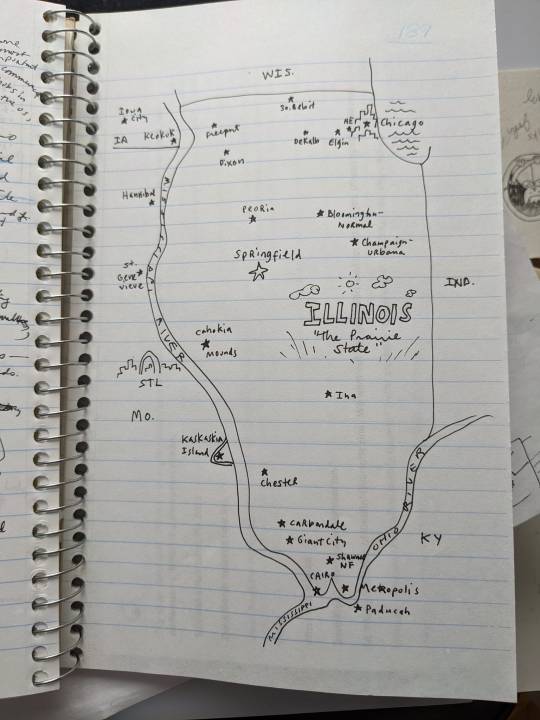 137
WIS.
Iowa
City
IA
Keokuk
Freeport
So. Beloit
Dixon
DeKalb
Elgin
Chicago
Hannibal
PEORia
Bloomington-
Normal
Champaign-
Urbana
Springfield
St.
Gene
vieve
IND.
ILLINOIS
"The Prairie
State"
RIVER
Cahokia
Mounds
STL
MO.
Ina
Kaskaskia
Island
Chester
Carbondale
Giant City
Shawnee
NF
CAIRO
Metropolis
Paducah
OHIO RIVER
KY
MISSISSIPPI